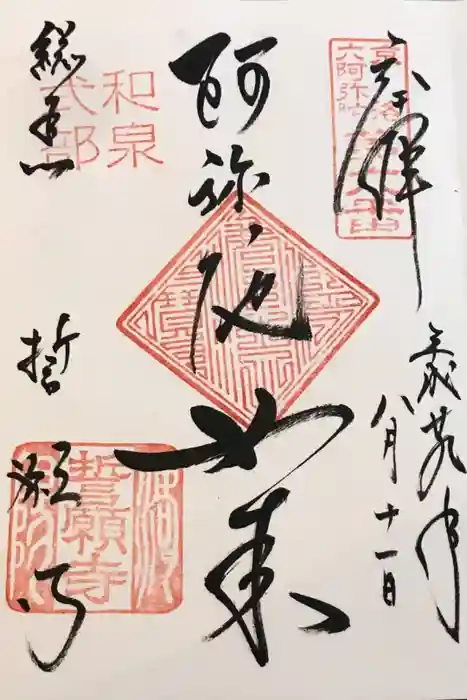 奉拝
京洛
六阿弥陀
平成廿九年
八月十一日
阿弥陀如来
和泉
式部
総本山
誓願寺
誓願寺